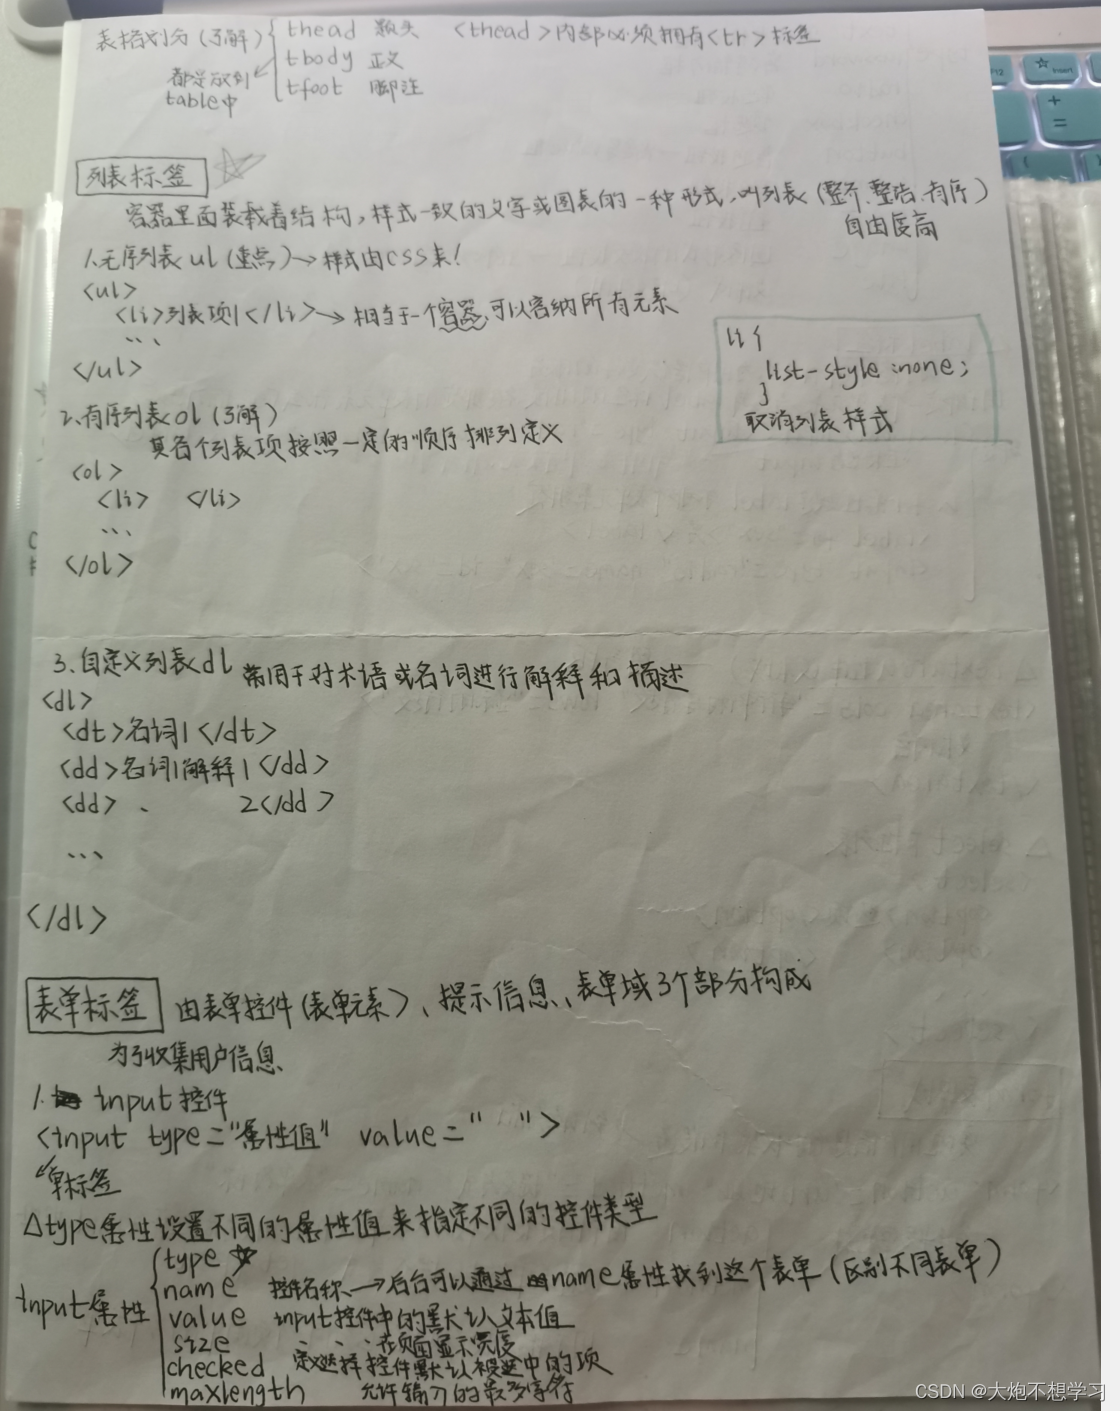 表格划分(了解) thead 数头 <thead>内部必须拥有<tr>标签
tbody 正文
都是放到 tfoot 脚注
table中
列表标签
容器里面装载着结构,样式一致的文字或图表的一种形式,叫列表(整齐.整洁.有序)
自由度高
1.无序列表ul(重点)→样式由CSS来!
<ul>
<li>列表项1</li>→相当于一个容器,可以容纳所有元素
...
</ul>
li{
list-style:none;
}
取消列表样式
2.有序列表ol(了解)
其各个列表项按照一定的顺序排列定义
<ol>
<li> </li>
...
</ol>
3.自定义列表dl 常用于对术语或名词进行解释和描述
<dl>
<dt>名词1</dt>
<dd>名词1解释1</dd>
<dd> 、 2</dd>
...
</dl>
表单标签 由表单控件(表单元素)、提示信息、表单域3个部分构成
为了收集用户信息
1. input控件
<input type="属性值" value=" ">
单标签
△type属性设置不同的属性值来指定不同的控件类型
input属性 type ☆
name 控件名称→后台可以通过name属性找到这个表单(区别不同表单)
value input控件中的默认文本值
size 、 、 、在页面显示宽度
checked 定义选择控件默认被选中的项
maxlength 允许输入的最多字符
Insert
CSDN @大炮不想学习